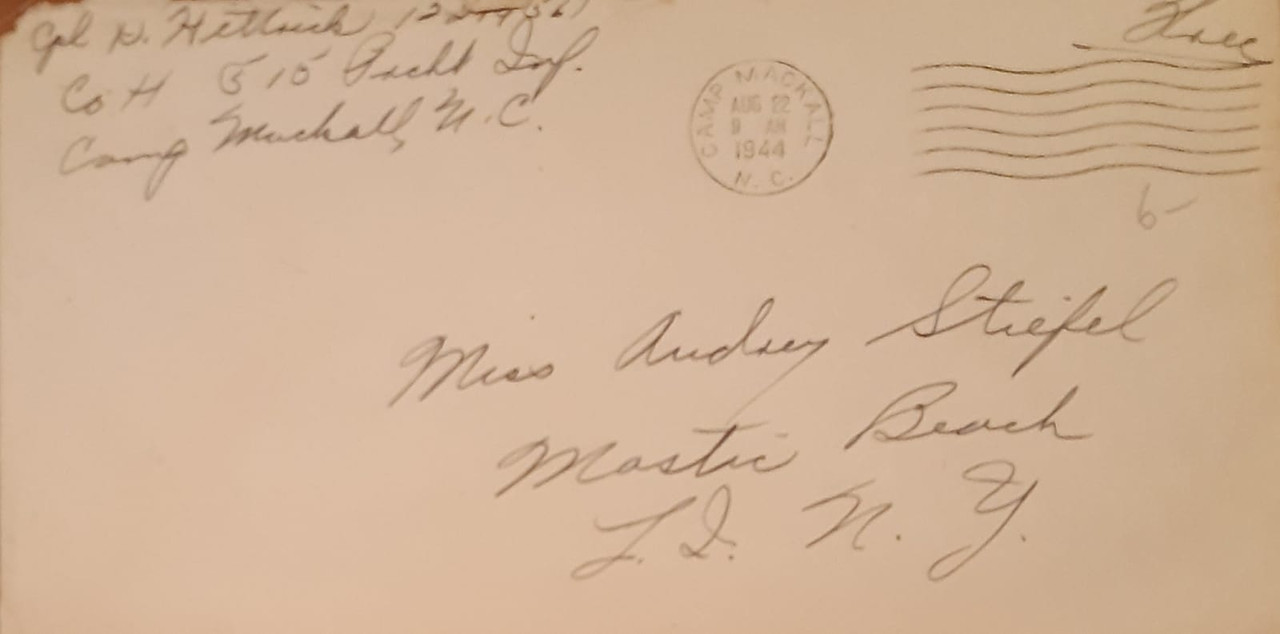 Cpl D. Hettrick
Co H 515 Pracht Inf.
Camp Mackall, N.C.
CAMP MACKALL
AUG 22
9 AM
1944
N. C.
Free
6-
Miss Audrey Stiefel
Mastic Beach
L. I. N. Y.